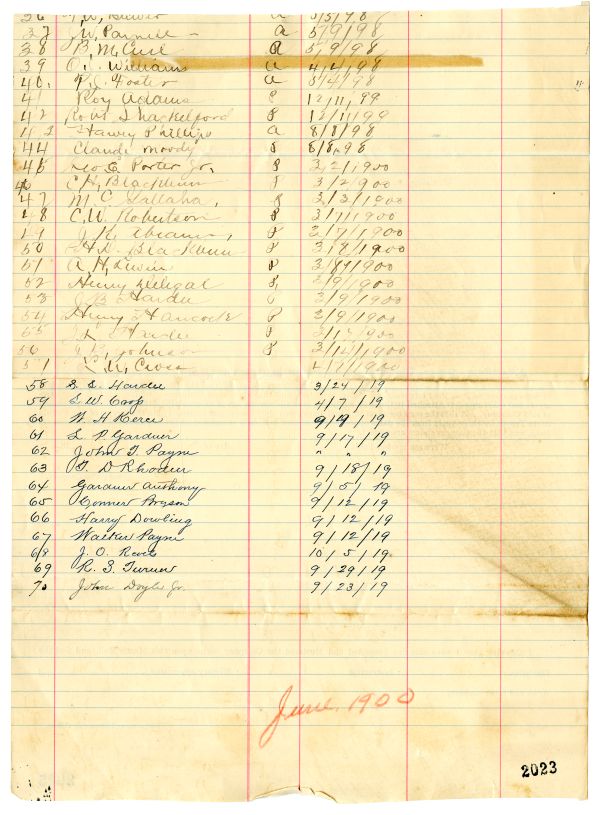 37 J.W. Parnell — A 5/9/98
38 B. McCuil A 5/9/98
39 O.J. Williams A 4/4/98
40. Foster A 5/4/98
41 Roy Adams P 12/11/99
42 Robt Shackelford P 12/11/99
43 Harvey Phillips A 8/8/98
44 Claude Moody P 8/8/98
45 Geo E Porter Jr. P 3/2/1900
46 C.H. Blackburn P 3/2/1900
47 M.C. Gallaha, P 3/3/1900
48 C.W. Robertson P 3/7/1900
49 J.K. Abrams, P 3/7/1900
50 Blackburn P 3/8/1900
51 A.H. P 3/8/1900
52 Henry P, 3/9/1900
53 J.B. Hardee P 3/9/1900
54 Henry Hancock P 3/9/1900
55 Hardee P 1900
56 Johnson P 3/12/1900
57 1900
58 S. S. Hardee 3/24/19
59 S. W. 4/7/19
60 W H Kerce 9/9/19
61 L P Gardner 9/17/19
62 John T. Payne " " "
63 T. D Rhoden 9/18/19
64 Gardner Anthony 9/5/19
65 Conner Bryson 9/12/19
66 Harry Dowling 9/12/19
67 Walker Payne 9/12/19
68 J. O. 10/5/19
69 R. S. Turner 9/29/19
70 John Doyle Jr. 9/23/19
June, 1900
2023